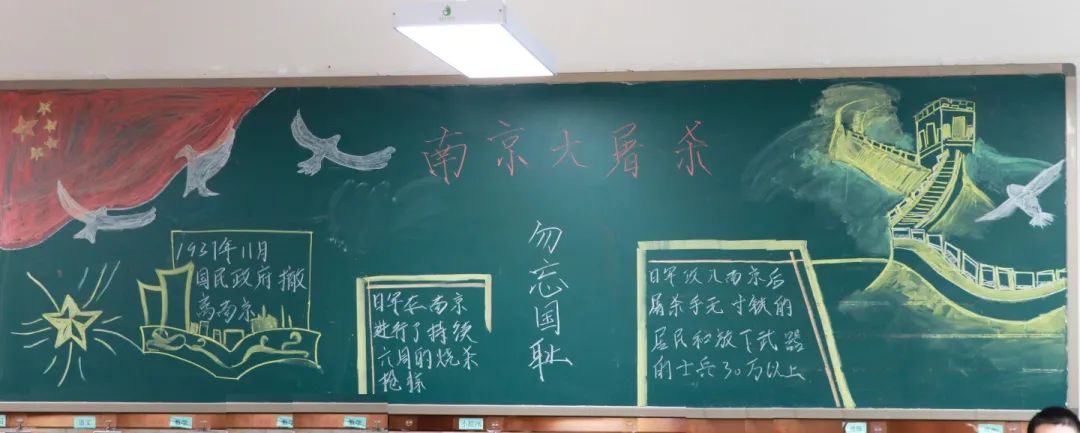 南京大屠杀
勿忘国耻
1937年11月
国民政府撤
离南京
日军在南京
进行了持续
六月的烧杀
抢掠
日军攻入南京后
屠杀手无寸铁的
居民和放下武器
的士兵30万以上
语文
数学
数学
数学